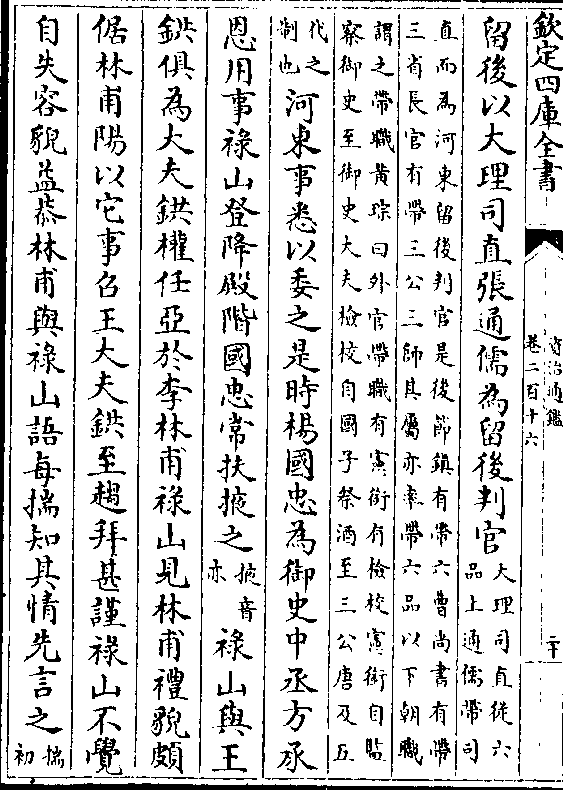 欽定四庫全書
資治通鑑
卷二百十六
二十
留後以大理司直張通儒為留後判官
大理司直從六
品上通儒帶司
直而為河東留後判官是後節鎮有帶六曹尚書有帶
三省長官有帶三公三師其屬亦率帶六品以下朝職
謂之帶職黃琮曰外官帶職有憲銜有檢校憲銜自監
察御史至御史大夫檢校自國子祭酒至三公唐及五
代之
制也
河東事悉以委之是時楊國忠為御史中丞方承
恩用事祿山登降殿階國忠常扶掖之
掖音
亦
祿山與王
鉷俱為大夫鉷權任亞於李林甫祿山見林甫禮貌頗
倨林甫陽以它事召王大夫鉷至趨拜甚謹祿山不覺
自失容貌益恭林甫與祿山語每揣知其情先言之
揣
初